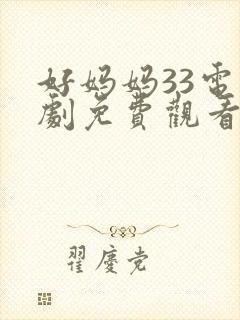 好妈妈33电
劇免費觀看
翟慶党